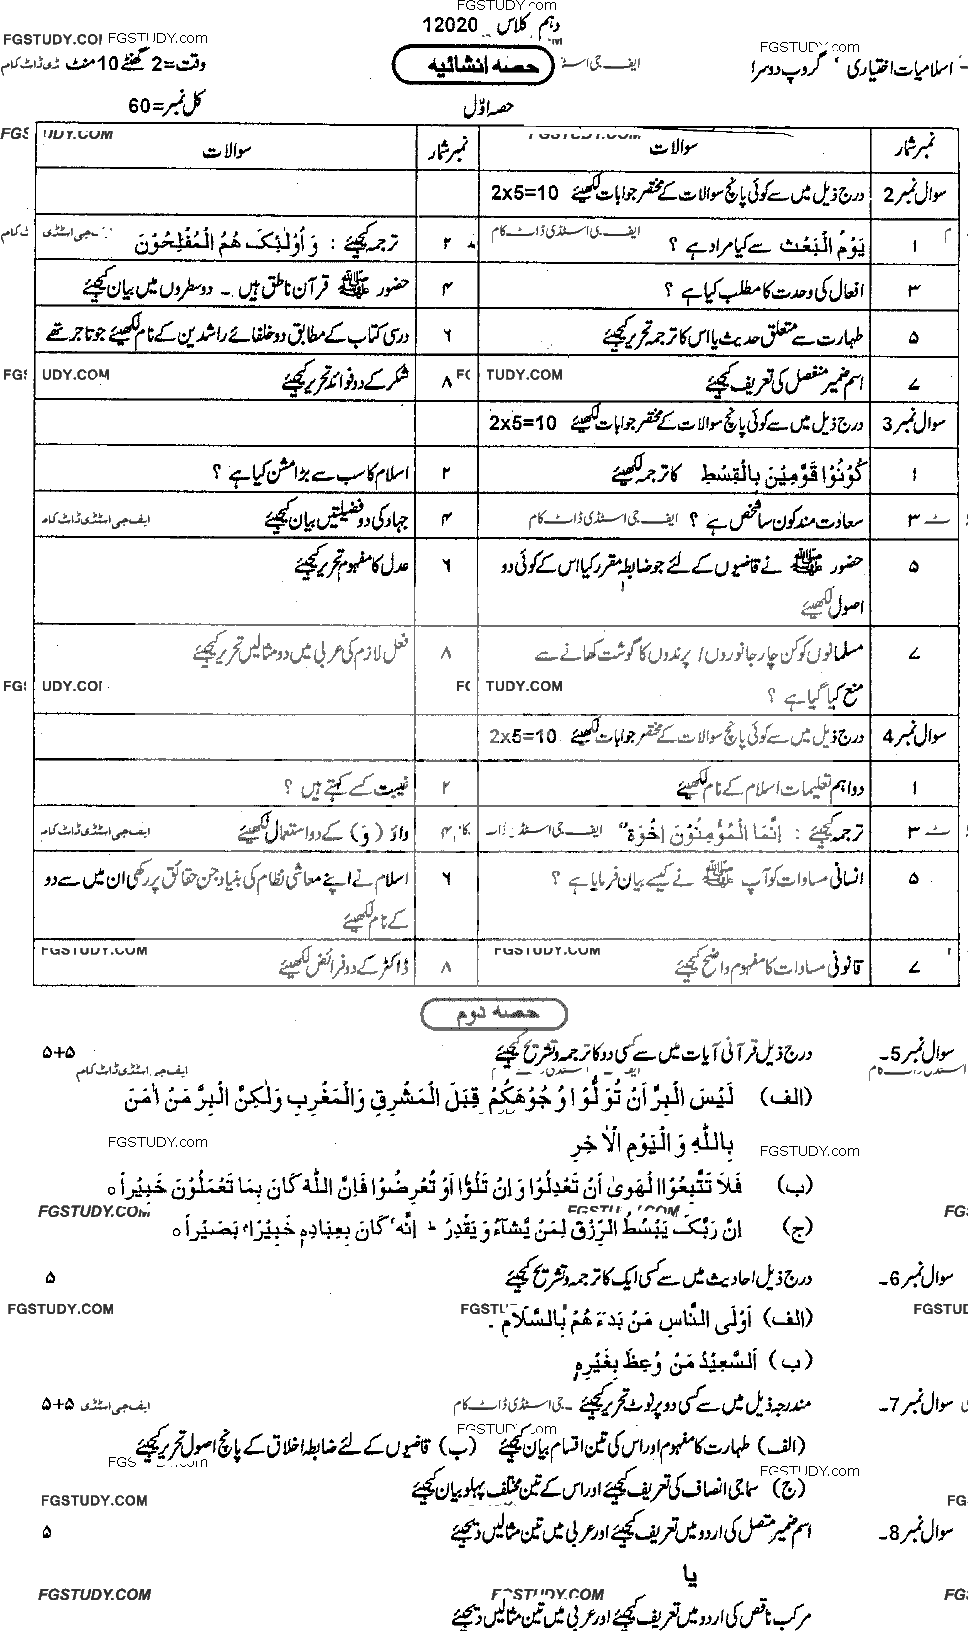 FGSTUDY.com
دہم کلاس 12020
FGSTUDY.COM FGSTUDY.com
FGSTUDY.com
اسلامیات اختیاری ، گروپ دوسرا
ایف جی اسٹڈی ڈاٹ کام
حصہ انشائیہ
وقت=2 گھنٹے 10 منٹ
حصہ اوّل
کل نمبر=60
FGSTUDY.COM
نمبر شمار سوالات نمبر شمار سوالات
سوال نمبر 2 درج ذیل میں سے کوئی پانچ سوالات کے مختصر جوابات لکھیئے 2x5=10
۱ یَوْمُ الْبَعْث سے کیا مراد ہے ؟ ایف جی اسٹڈی ڈاٹ کام
۲ ترجمہ کیجیئے : وَ اُولٰئِکَ هُمُ الْمُفْلِحُوْنَ
۳ افعال کی وحدت کا مطلب کیا ہے ؟
۴ حضور ﷺ قرآن ناطق ہیں ۔ دو سطروں میں بیان کیجیئے
۵ طہارت سے متعلق حدیث یا اس کا ترجمہ تحریر کیجیئے
۶ درسی کتاب کے مطابق دو خلفائے راشدین کے نام لکھیئے جو تاجر تھے
۷ اسم ضمیر منفصل کی تعریف کیجیئے
۸ شکر کے دو فوائد تحریر کیجیئے
سوال نمبر 3 درج ذیل میں سے کوئی پانچ سوالات کے مختصر جوابات لکھیئے 2x5=10
۱ کُوْنُوْا قَوّٰمِیْنَ بِالْقِسْطِ کا ترجمہ لکھیئے
۲ اسلام کا سب سے بڑا مشن کیا ہے ؟
۳ سعادت مند کون سا شخص ہے ؟ ایف جی اسٹڈی ڈاٹ کام
۴ جہاد کی دو فضیلتیں بیان کیجیئے ایف جی اسٹڈی ڈاٹ کام
۵ حضور ﷺ نے قاضیوں کے لئے جو ضابطہ مقرر کیا اس کے کوئی دو
اصول لکھیئے
۶ عدل کا مفہوم تحریر کیجیئے
۷ مسلمانوں کو کن چار جانوروں / پرندوں کا گوشت کھانے سے
منع کیا گیا ہے ؟
۸ فعل لازم کی عربی میں دو مثالیں تحریر کیجیئے
سوال نمبر 4 درج ذیل میں سے کوئی پانچ سوالات کے مختصر جوابات لکھیئے 2x5=10
۱ دو اہم تعلیمات اسلام کے نام لکھیئے
۲ غیبت کسے کہتے ہیں ؟
۳ ترجمہ کیجیئے : اِنَّمَا الْمُؤْمِنُوْنَ اِخْوَةٌ
۴ واؤ (وَ) کے دو استعمال لکھیئے ایف جی اسٹڈی ڈاٹ کام
۵ انسانی مساوات کو آپ ﷺ نے کیسے بیان فرمایا ہے ؟
۶ اسلام نے اپنے معاشی نظام کی بنیاد جن حقائق پر رکھی ان میں سے دو
کے نام لکھیئے
FGSTUDY.COM FGSTUDY.COM
۷ قانونی مساوات کا مفہوم واضح کیجیئے
۸ ڈاکٹر کے دو فرائض لکھیئے
حصہ دوم
سوال نمبر 5۔ درج ذیل قرآنی آیات میں سے کسی دو کا ترجمہ و تشریح کیجیئے ۵+۵
ایف جی اسٹڈی ڈاٹ کام
(الف) لَیْسَ الْبِرَّ اَنْ تُوَلُّوْا وُجُوْهَکُمْ قِبَلَ الْمَشْرِقِ وَالْمَغْرِبِ وَلٰکِنَّ الْبِرَّ مَنْ اٰمَنَ
بِاللّٰهِ وَ الْیَوْمِ الْاٰخِرِ
FGSTUDY.com FGSTUDY.com
(ب) فَلَا تَتَّبِعُوْا الْهَوٰی اَنْ تَعْدِلُوْا وَ اِنْ تَلْوٗا اَوْ تُعْرِضُوْا فَاِنَّ اللّٰهَ کَانَ بِمَا تَعْمَلُوْنَ خَبِیْرًا ٥
FGSTUDY.COM
(ج) اِنَّ رَبَّکَ یَبْسُطُ الرِّزْقَ لِمَنْ یَّشَآءُ وَ یَقْدِرُ ط اِنَّهٗ کَانَ بِعِبَادِهٖ خَبِیْرًا بَصِیْرًا ٥
سوال نمبر 6۔ درج ذیل احادیث میں سے کسی ایک کا ترجمہ و تشریح کیجیئے ۵
FGSTUDY.COM
(الف) اَوْلَی النَّاسِ مَنْ بَدَءَ هُمْ بِالسَّلَامِ ۔
(ب) اَلسَّعِیْدُ مَنْ وُعِظَ بِغَیْرِهٖ
سوال نمبر 7۔ مندرجہ ذیل میں سے کسی دو پر نوٹ تحریر کیجیئے ۔ ایف جی اسٹڈی ڈاٹ کام ۵+۵
FGSTUDY.com
(الف) طہارت کا مفہوم اور اس کی تین اقسام بیان کیجیئے (ب) قاضیوں کے لئے ضابطہ اخلاق کے پانچ اصول تحریر کیجیئے
FGSTUDY.com
(ج) سماجی انصاف کی تعریف کیجیئے اور اس کے تین مختلف پہلو بیان کیجیئے
FGSTUDY.COM
سوال نمبر 8۔ اسم ضمیر متصل کی اردو میں تعریف کیجیئے اور عربی میں تین مثالیں دیجیئے ۵
یا
FGSTUDY.COM FGSTUDY.COM
مرکب ناقص کی اردو میں تعریف کیجیئے اور عربی میں تین مثالیں دیجیئے